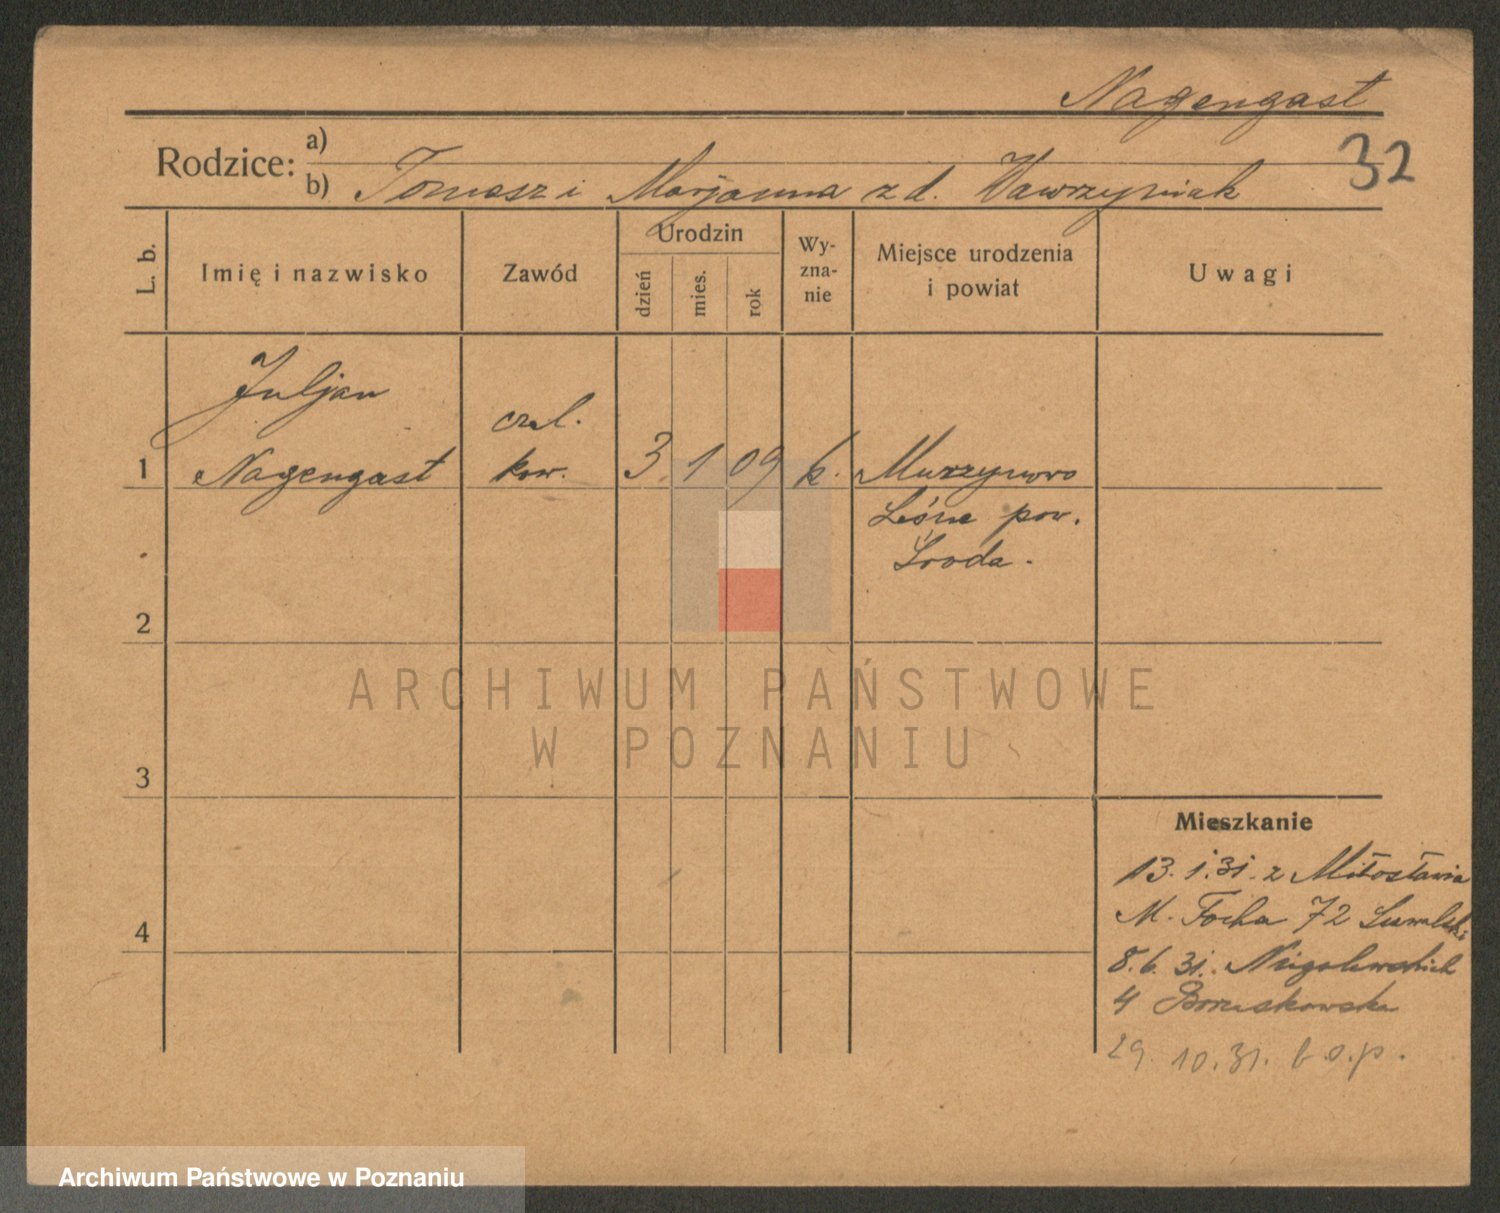 Nagengast
32
Rodzice:
a)
b) Tomasz i Marjanna z d. Wawrzyniak
L. b.
Imię i nazwisko
Zawód
Urodzin
dzień
mies.
rok
Wy-
zna-
nie
Miejsce urodzenia
i powiat
Uwagi
Juljan
czel.
1 Nagengast kow. 3. 1 09 k. Murzynowo
Leśne pow.
Środa.
2
3
4
Mieszkanie
13. 1. 31. z Miłosławia
M. Focha 72 Suwalski
8. 6. 31. Niegolewskich
4 Boruszkowska
29. 10. 31. b. o. p.
ARCHIWUM PAŃSTWOWE
W POZNANIU
Archiwum Państwowe w Poznaniu